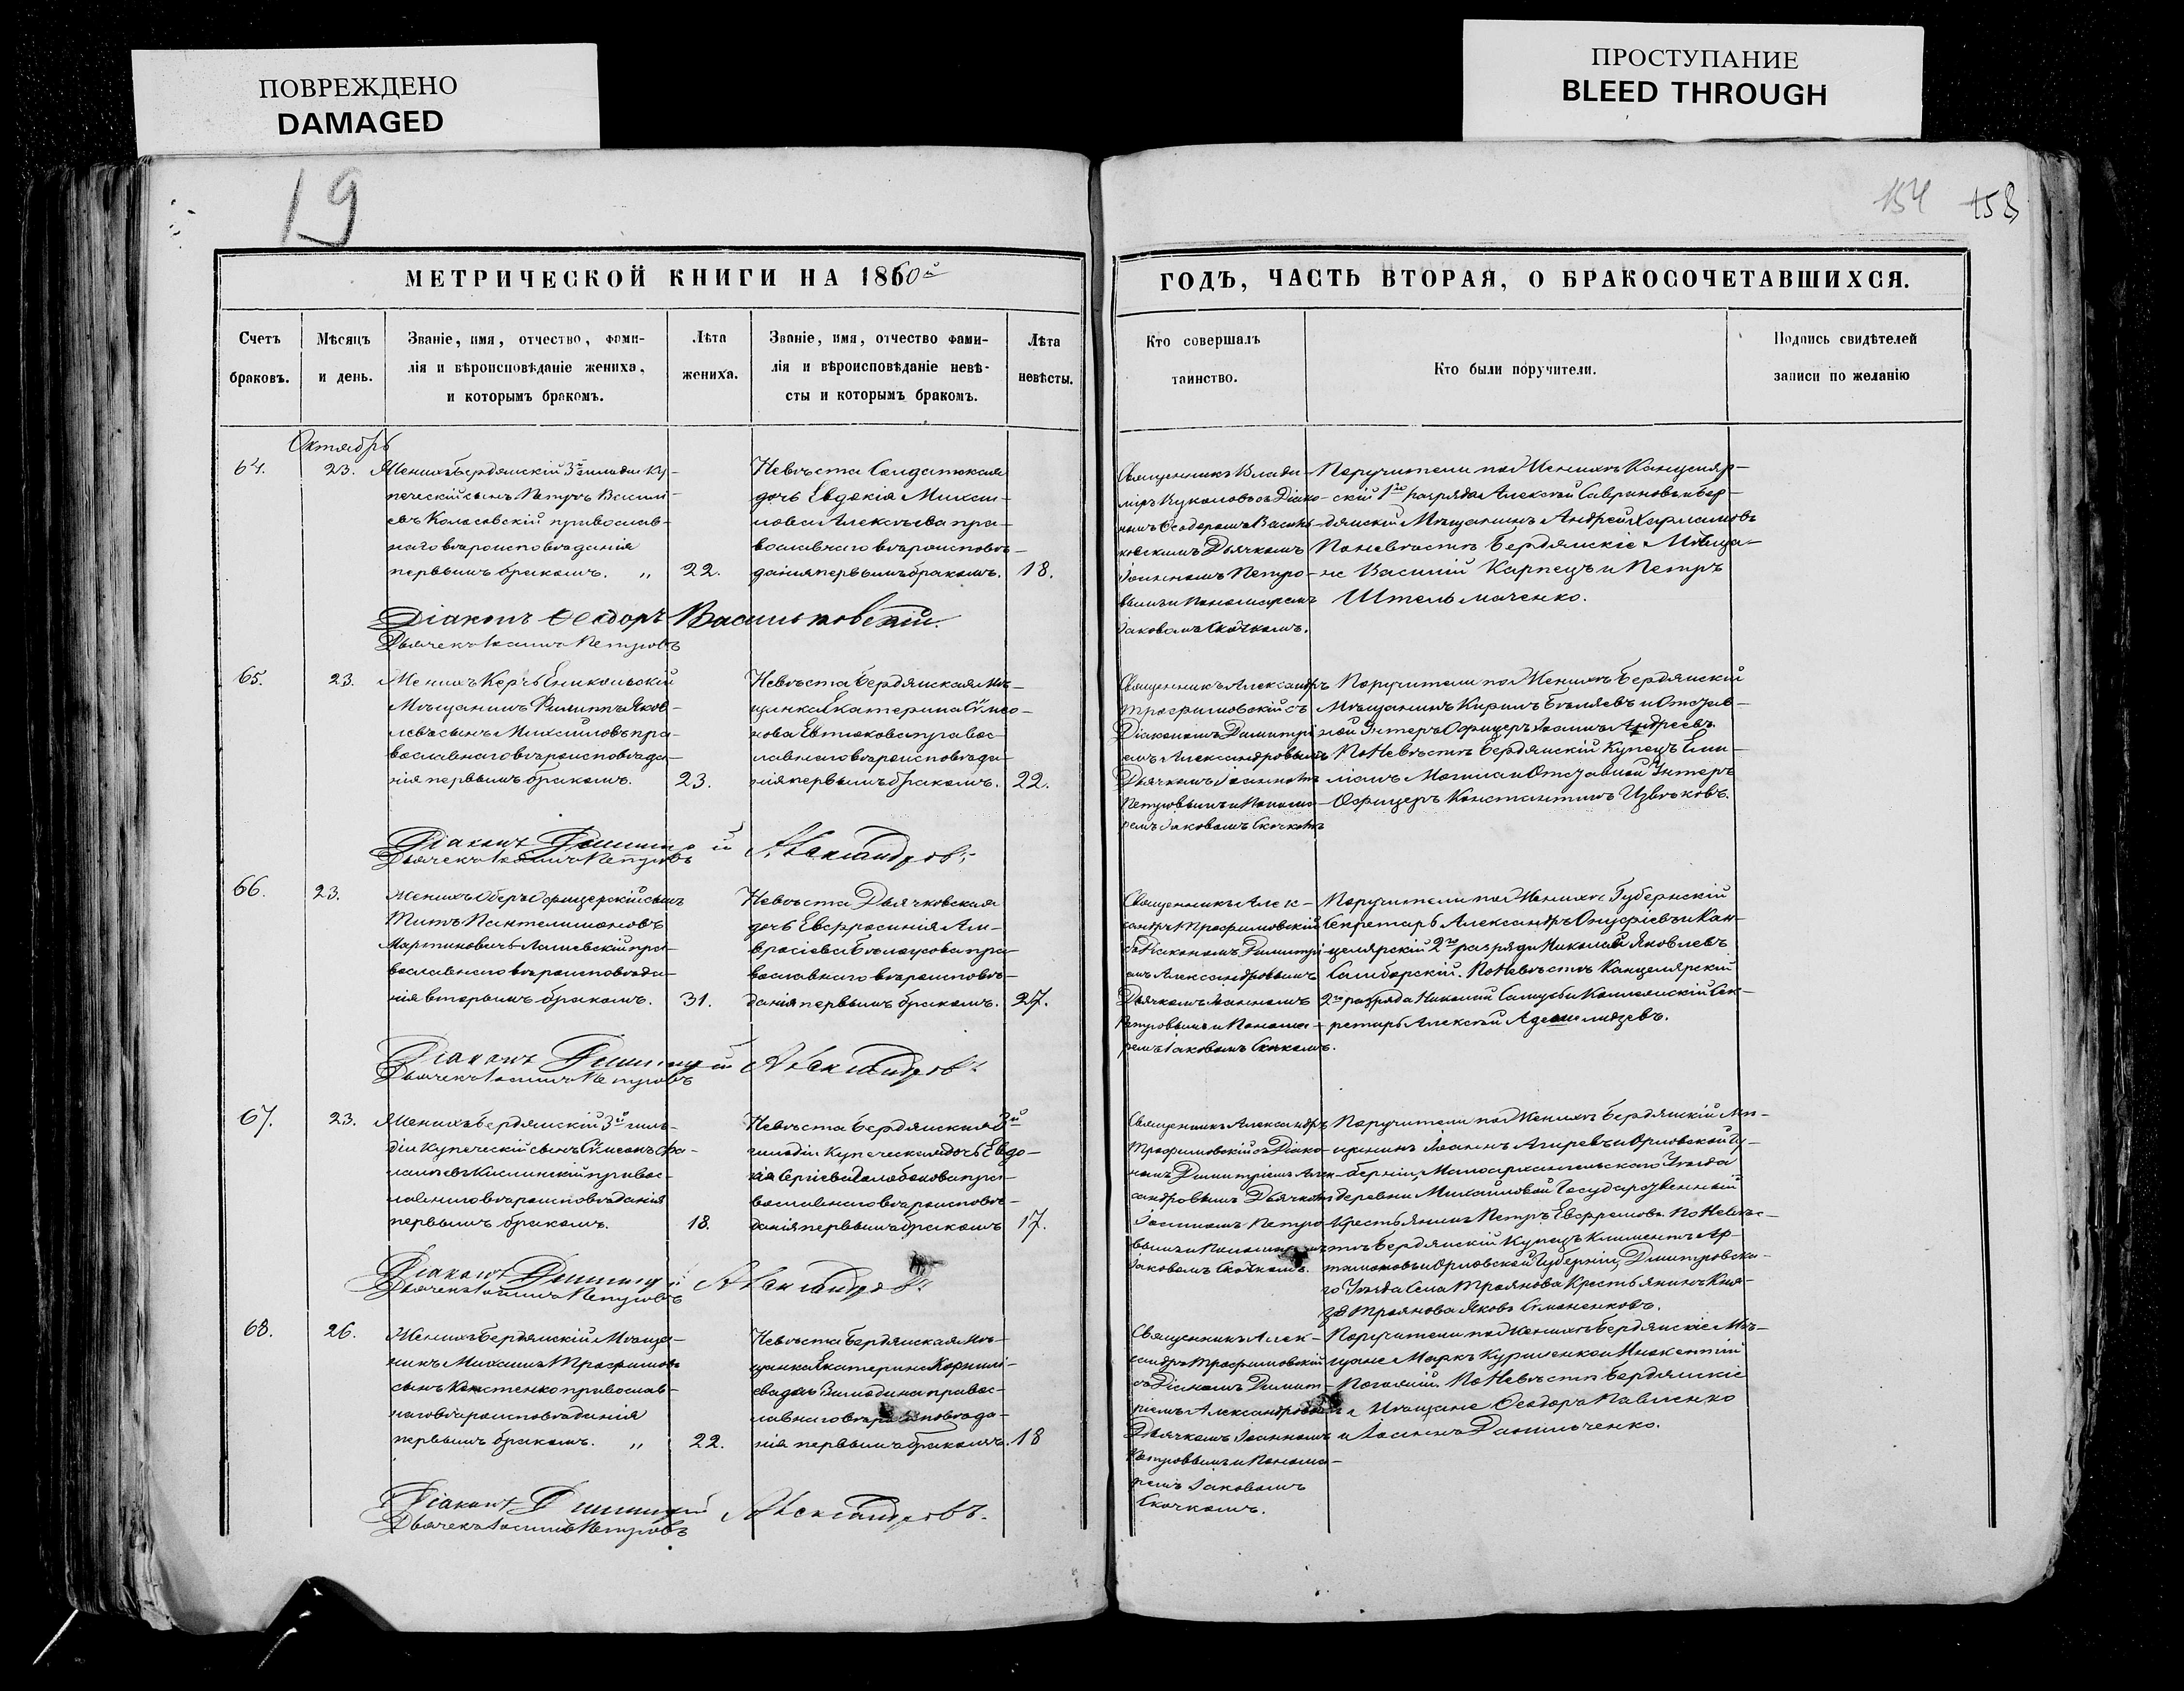 ПОВРЕЖДЕНО
DAMAGED
ПРОСТУПАНИЕ
BLEED THROUGH
19
154 158
МЕТРИЧЕСКОЙ КНИГИ НА 1860й
ГОДЪ, ЧАСТЬ ВТОРАЯ, О БРАКОСОЧЕТАВШИХСЯ.
Счетъ
браковъ.
Мѣсяцъ
и день.
Званіе, имя, отчество, фами-
лія и вѣроисповѣданіе жениха,
и которымъ бракомъ.
Лѣта
жениха.
Званіе, имя, отчество фами-
лія и вѣроисповѣданіе невѣ-
сты и которымъ бракомъ.
Лѣта
невѣсты.
Кто совершалъ
таинство.
Кто были поручители.
Подпись свидѣтелей
записи по желанію
Октябрь
64.
23.
Женихъ Бердянскій 3й гильдіи Ку-
печескій сынъ Петръ Василі-
евъ Коласовскій православ-
наго вѣроисповѣданія
первымъ бракомъ. „
22.
Невѣста Солдатская
дочь Евдокія Михаи-
лова Алексѣева пра-
вославнаго вѣроисповѣ-
данія первымъ бракомъ.
18.
Священникъ Влади-
міръ съ Діако-
номъ Ѳеодоромъ Василь-
ковскимъ Дьячкомъ
Іоанномъ Петро-
вымъ и Пономаремъ
Іаковомъ Скочкомъ.
Поручители по Женихѣ Канцеляр-
скій 1го разряда Алексѣй Савриновъ и Бер-
дянскій Мѣщанинъ Андрей Харламовъ
По невѣстѣ Бердянскіе Мѣща-
не Василій Карпецъ и Петръ
Штельмаченко.
Діаконъ Ѳеодоръ Васильковскій.
Дьячекъ Іоаннъ Петровъ
65.
23.
Женихъ Керчь Еникольскій
Мѣщанинъ Филиппъ Яков-
левъ сынъ Михайловъ пра-
вославнаго вѣроисповѣда-
нія первымъ бракомъ.
23.
Невѣста Бердянская Мѣ-
щанка Екатерина Сѵмео-
нова Евтюхова правос-
лавнаго вѣроисповѣда-
нія первымъ бракомъ.
22.
Священникъ Александръ
Трофимовскій съ
Діакономъ Димитрі-
емъ Александровымъ
Дьячкомъ Іоанномъ
Петровымъ и Понома-
ремъ Іаковомъ Скочкомъ
Поручители по Женихѣ Бердянскій
Мѣщанинъ Кирилъ Бѣляевъ и Отстав-
ной Унтеръ Офицеръ Іоаннъ Андреевъ
По Невѣстѣ Бердянскій Купецъ Еми-
ліанъ Могила и Отставной Унтеръ
Офицеръ Константинъ Извѣковъ.
Діаконъ Димитрій Александровъ
Дьячекъ Іоаннъ Петровъ
66.
23.
Женихъ Оберъ Офицерскій сынъ
Титъ Пантелимоновъ
Мартиновичъ православнаго вѣроисповѣда-
нія вторымъ бракомъ.
31.
Невѣста Дьячковская
дочь Евфросинія Ам-
вросіева Бѣлоусова пра-
вославнаго вѣроисповѣ-
данія первымъ бракомъ.
27.
Священникъ Алек-
сандръ Трофимовскій
съ Діакономъ Димитрі-
емъ Александровымъ
Дьячкомъ Іоанномъ
Петровымъ и Понома-
ремъ Іаковомъ Скочкомъ.
Поручители по Женихѣ Губернскій
Секретарь Александръ Онуфріевъ и Кан-
целярскій 2го разряда Николай Яковлевъ
Самборскій. По Невѣстѣ Канцелярскій
2го разряда Николай и Коллежскій Сек-
ретарь Алексѣй
Діаконъ Димитрій Александровъ
Дьячекъ Іоаннъ Петровъ
67.
23.
Женихъ Бердянскій 3й гиль-
діи Купеческій сынъ Сѵмеонъ
Кислинскій правос-
лавнаго вѣроисповѣданія
первымъ бракомъ.
18.
Невѣста Бердянская 3й
гильдіи Купеческая дочь Евдо-
кія Сергіева православнаго вѣроисповѣ-
данія первымъ бракомъ
17.
Священникъ Александръ
Трофимовскій съ Діако-
номъ Димитріемъ Алек-
сандровымъ Дьячкомъ
Іоанномъ Петро-
вымъ и Пономаремъ
Іаковомъ Скочкомъ.
Поручители по Женихѣ Бердянскій Мѣ-
щанинъ Іоаннъ Агиревъ и Орловской Гу-
берніи, Малоархангельскаго Уѣзда
деревни Михайловой Государственный
Крестьянинъ Петръ Евфремовъ. По Невѣс-
тѣ Бердянскій Купецъ Климентъ Ар-
тамоновъ и Орловской Губерніи, Дмитровска-
го Уѣзда Села Троянова Крестьянинъ Кня-
зя Троянова Яковъ Сѵмоненковъ.
Діаконъ Димитрій Александровъ
Дьячекъ Іоаннъ Петровъ
68.
26.
Женихъ Бердянскій Мѣща-
нинъ Михаилъ Трофимовъ
сынъ Костенко православ-
наго вѣроисповѣданія
первымъ бракомъ. „
22.
Невѣста Бердянская Мѣ-
щанка Екатерина Корнилі-
ева дочь правос-
лавнаго вѣроисповѣда-
нія первымъ бракомъ.
18
Священникъ Алек-
сандръ Трофимовскій
съ Діакономъ Димит-
ріемъ Александровымъ
Дьячкомъ Іоанномъ
Петровымъ и Понома-
ремъ Іаковомъ
Скочкомъ.
Поручители по Женихѣ Бердянскіе Мѣ-
щане Маркъ Куриленко и Инокентій
Погалий. По Невѣстѣ Бердянскіе
Мѣщане Ѳеодоръ Павленко
и Іоаннъ Данильченко.
Діаконъ Димитрій Александровъ.
Дьячекъ Іоаннъ Петровъ